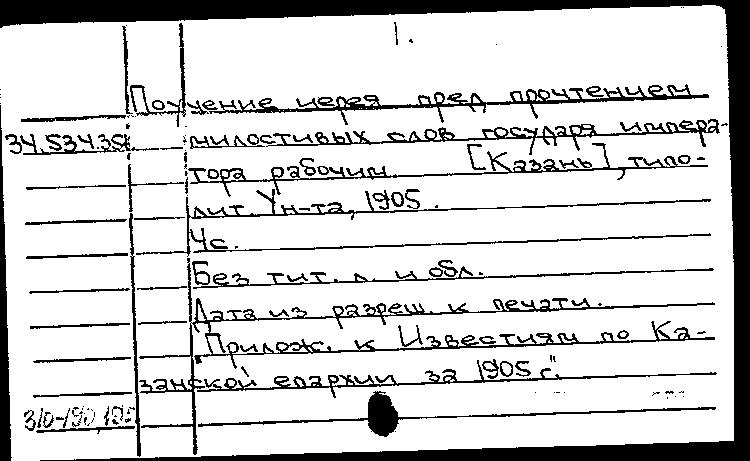 1.
Поучение иерея пред прочтением
34.5343д милостивых слов государя импера-
тора рабочим. [Казань], типо-
лит. Ун-та, 1905.
4с.
Без тит. л. и обл.
Дата из разреш. к печати.
"Прилож. к Известиям по Ка-
занской епархии за 1905 г."
310-190,195